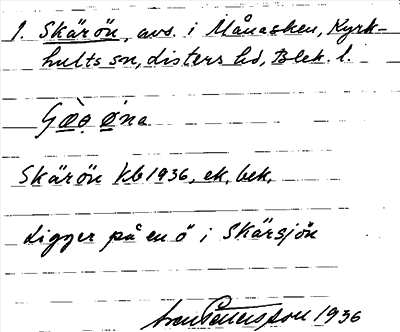 1. Skärön, avs. i Månasken, Kyrk-
hults sn, Listers hd, Blek. l.
Skärön kb 1936, ek, bek.
Ligger på en ö i Skärsjön
1936